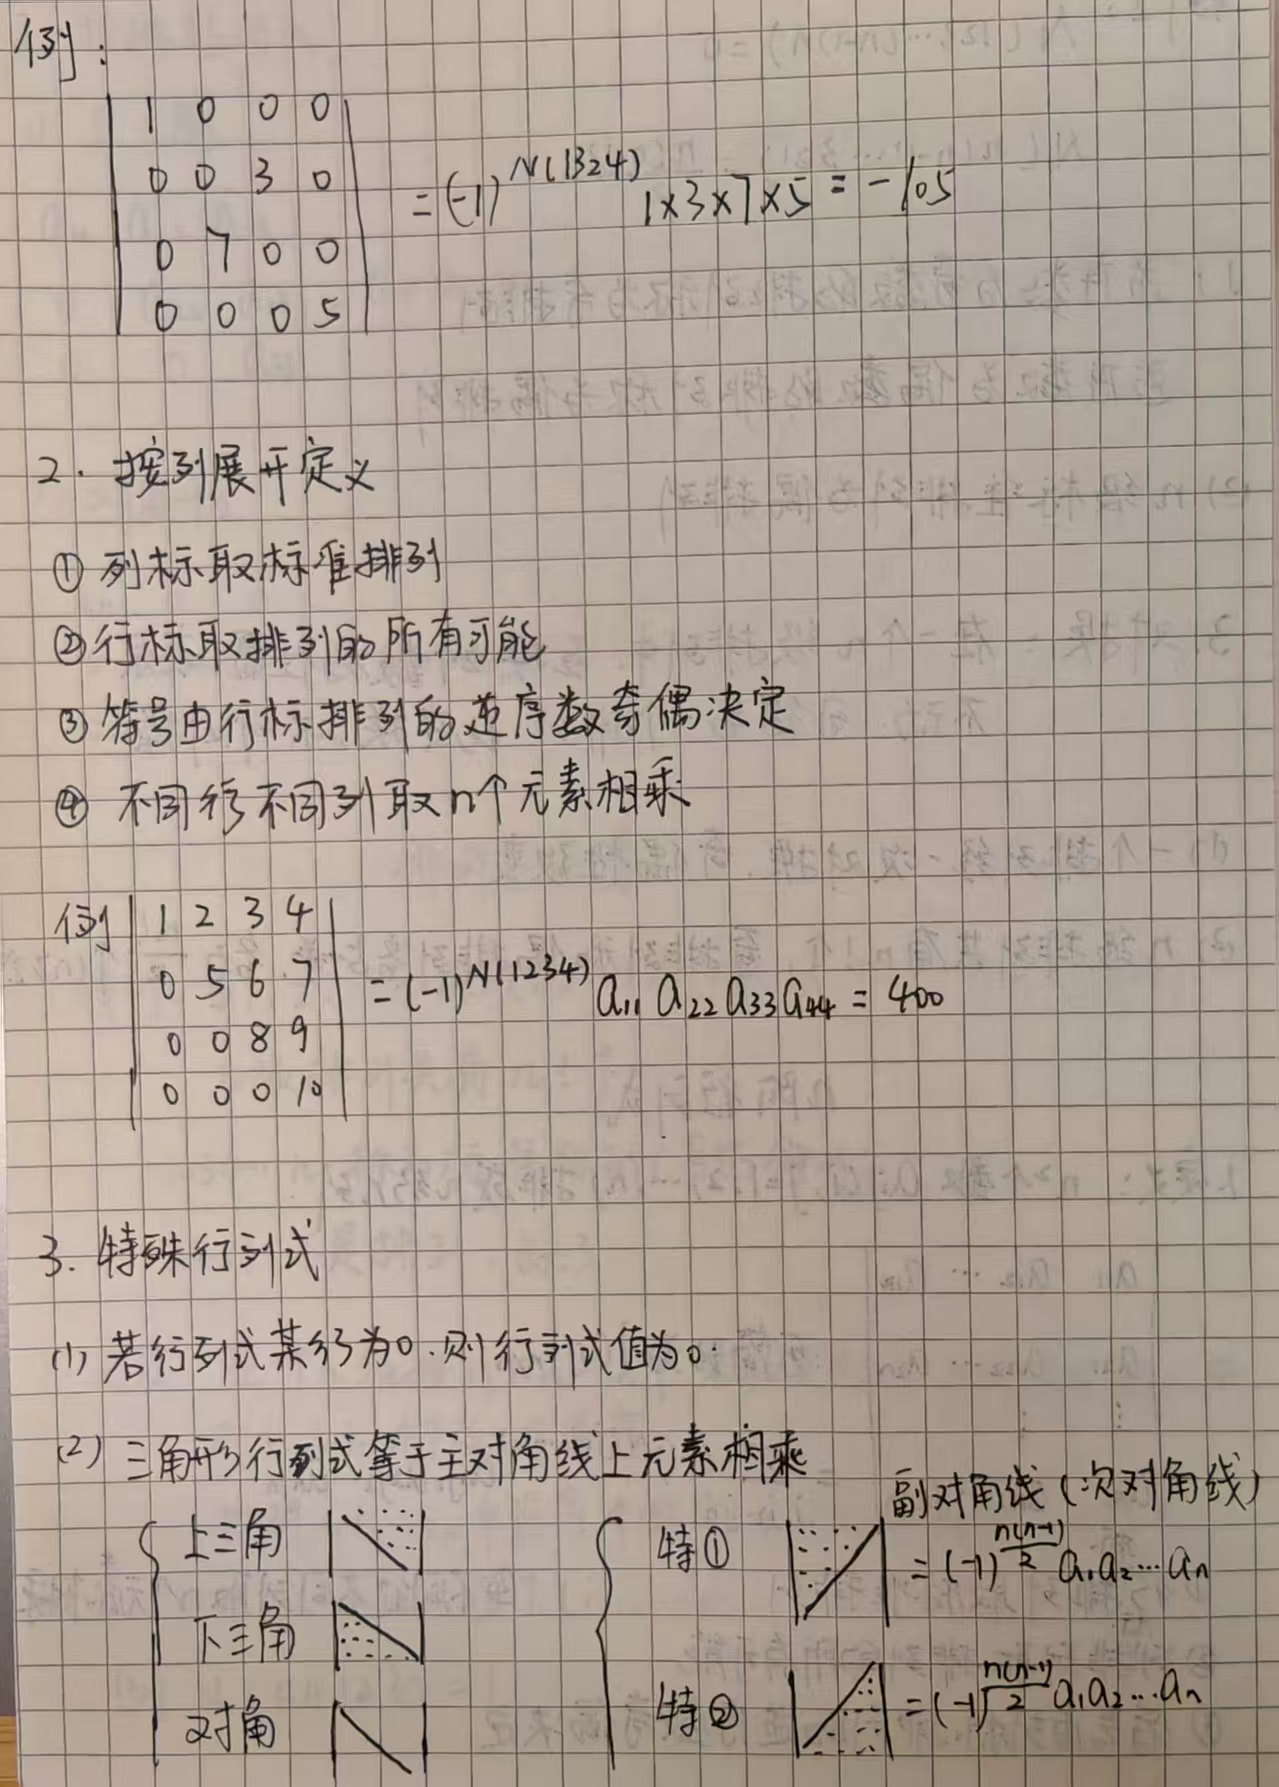 例:
| 1 0 0 0 |
| 0 0 3 0 | = (-1)^{N(1324)} 1×3×7×5 = -105
| 0 7 0 0 |
| 0 0 0 5 |
2. 按列展开定义
① 列标取标准排列
② 行标取排列的所有可能
③ 符号由行标排列的逆序数奇偶决定
④ 不同行不同列取n个元素相乘
例 | 1 2 3 4 |
| 0 5 6 7 | = (-1)^{N(1234)} a₁₁ a₂₂ a₃₃ a₄₄ = 400
| 0 0 8 9 |
| 0 0 0 10 |
3. 特殊行列式
(1) 若行列式某行为0.则行列式值为0.
(2) 三角形行列式等于主对角线上元素相乘
副对角线(次对角线)
上三角
特① = (-1)^{n(n-1)/2} a₁a₂…aₙ
下三角
对角
特② = (-1)^{n(n-1)/2} a₁a₂…aₙ